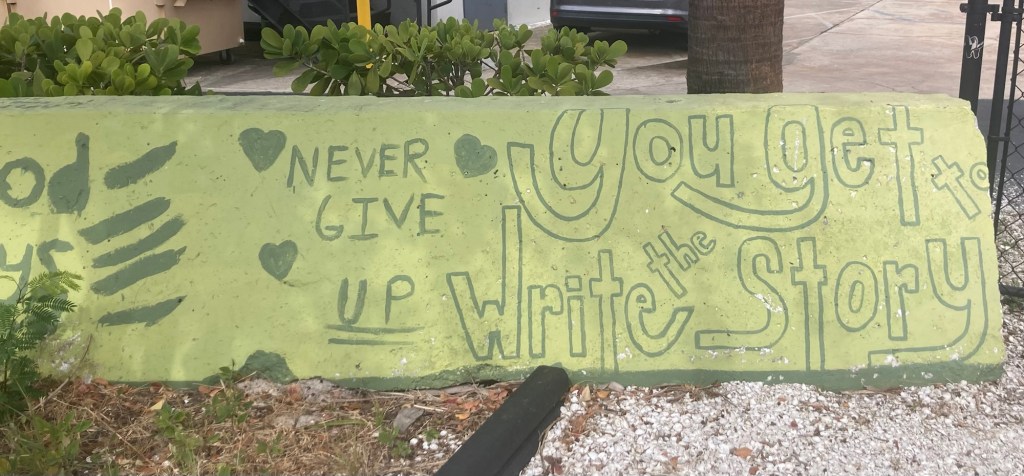 NEVER
GIVE
UP
You get to
Write the Story